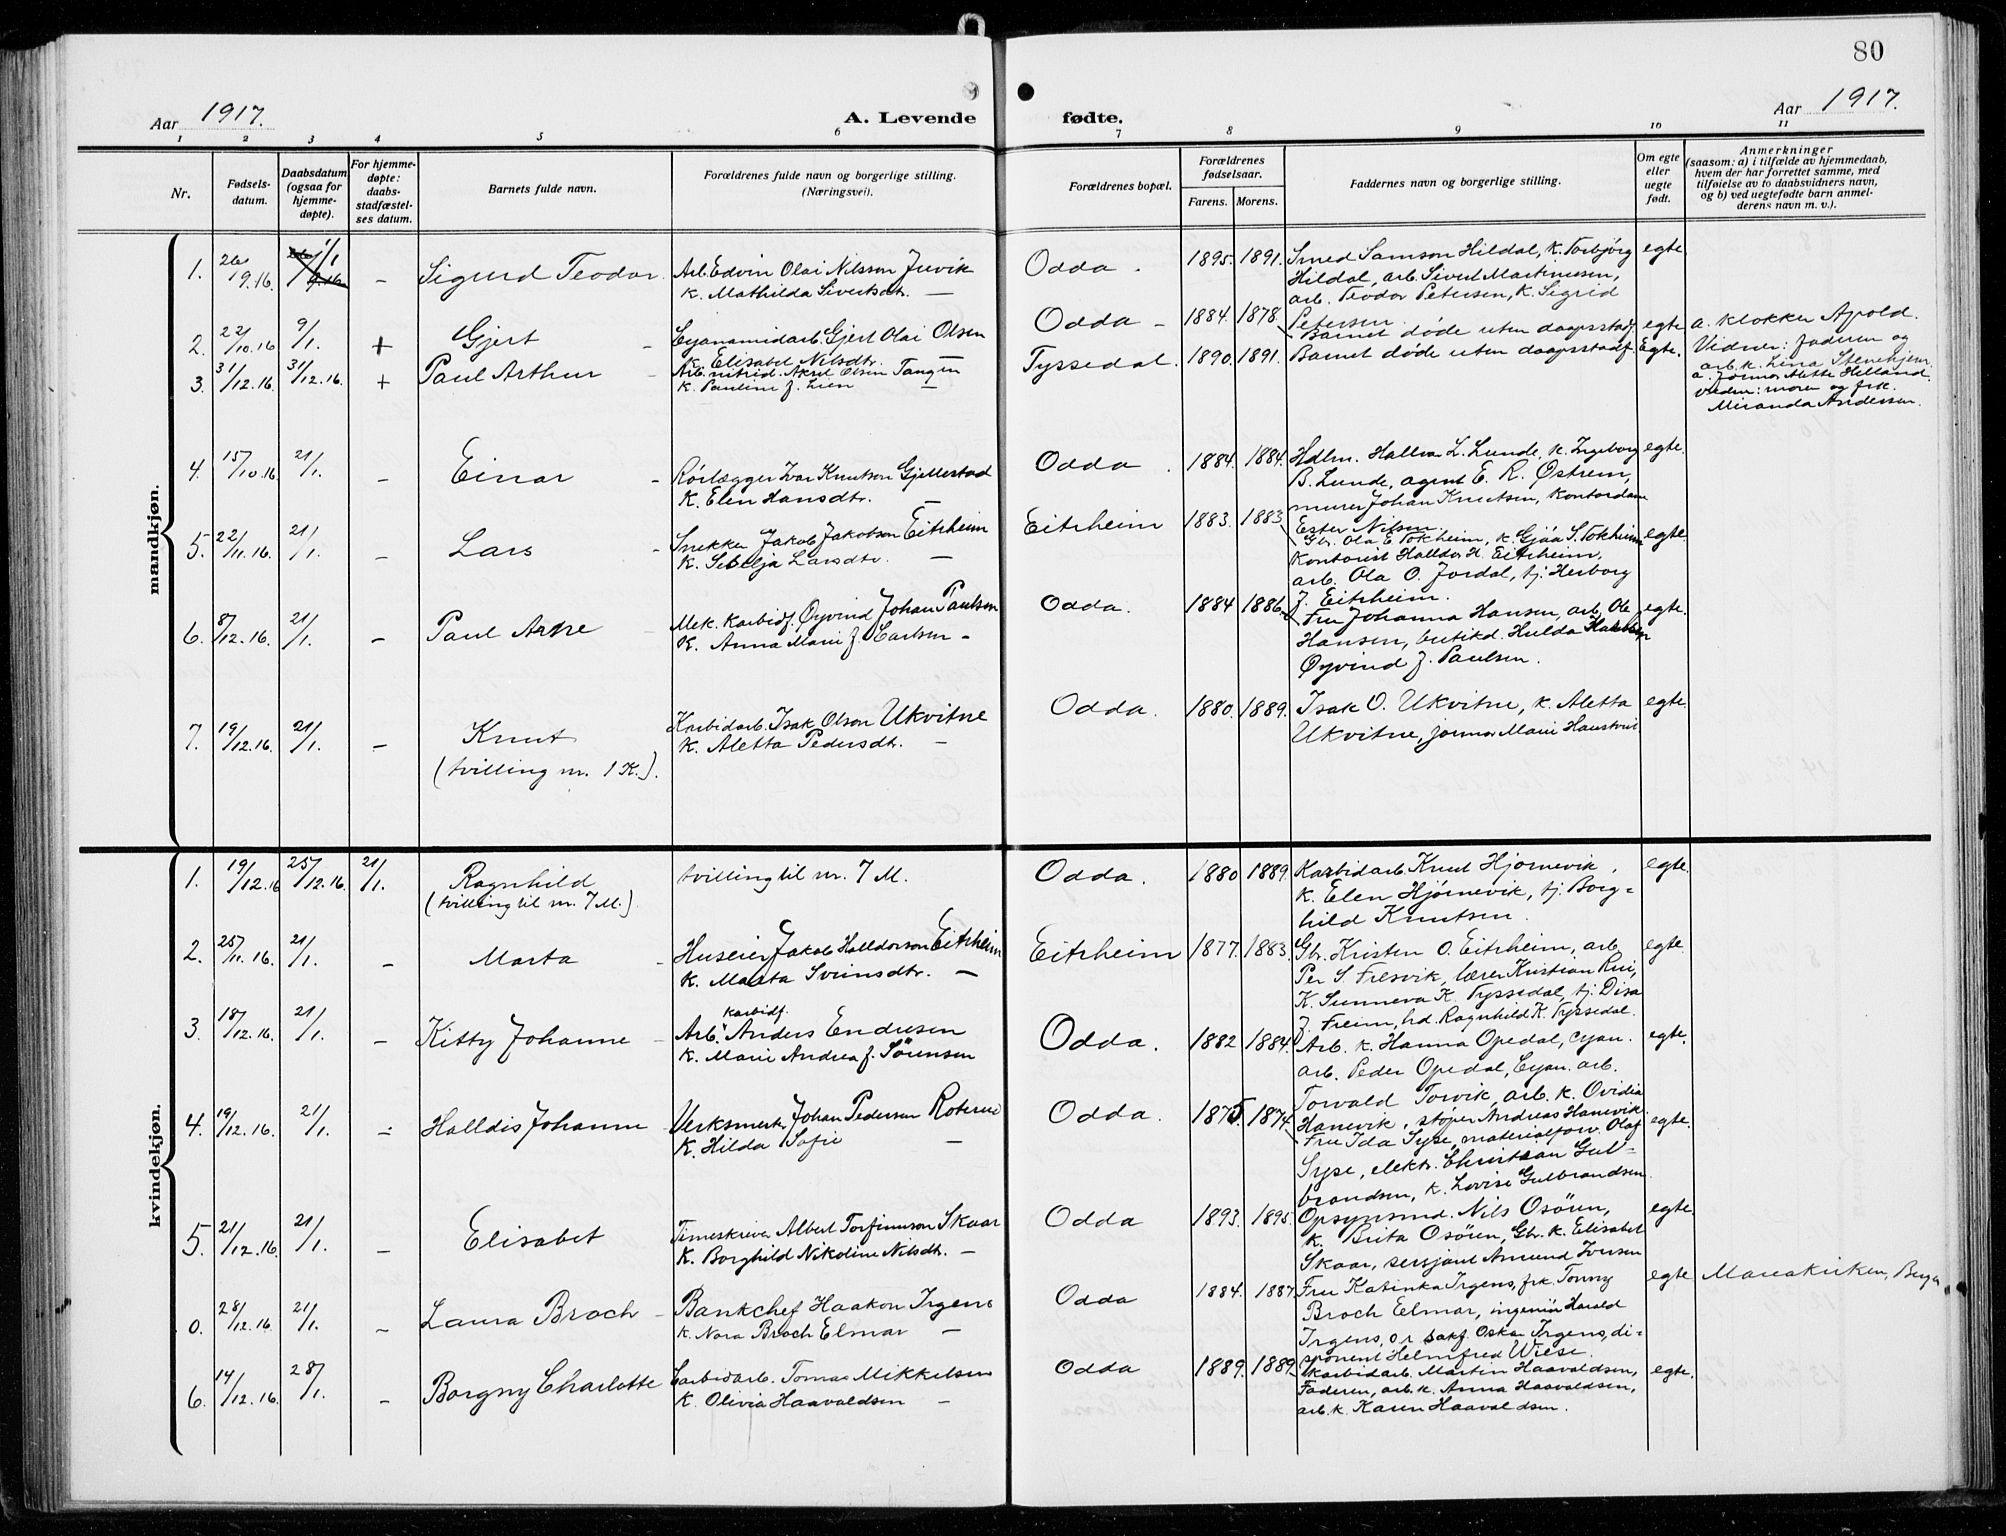 80
Aar 1917.
A. Levende fødte.
Aar 1917.
1 2 3 4 5 6 7 8 9 10 11
Nr.
Fødsels-
datum.
Daabsdatum
(ogsaa for
hjemme-
døpte).
For hjemme-
døpte:
daabs-
stadfæstel-
ses datum.
Barnets fulde navn.
Forældrenes fulde navn og borgerlige stilling.
(Næringsvei).
Forældrenes bopæl.
Forældrenes
fødselsaar.
Farens. Morens.
Faddernes navn og borgerlige stilling.
Om egte
eller
uegte
født.
Anmerkninger
(saasom: a) i tilfælde av hjemmedaab,
hvem der har forrettet samme, med
tilføielse av to daabsvidners navn,
og b) ved uegtefødte barn anmel-
derens navn m. v.).
mandkjøn.
1. 26/9.16. 1/1 – Sigurd Teodor.
Arb. Edvin Olai Nilsson Juvik
k. Mathilda Sivertsdtr. —
Odda. 1895. 1891.
Smed Samson Hildal, k. Torbjørg
Hildal, arb. Sivert Martinusen,
arb. Teodor Petersen, k. Sigrid
Petersen.
egte
2. 22/10.16 9/1. + Gjert –
Cyanamidarb. Gjert Olai Olsen
k. Elisabet Nilsdtr. —
Odda – 1884. 1878.
Barnet døde uten daapsstadf.
egte
a. klokker Apold.
Vidner: faderen og
arb. k. Lina Stenehjem
3. 31/12.16. 31/12.16. + Paul Arthur –
Arb. nitrid. Aksel Olsen Tangen
k. Pauline J. Lien —
Tyssedal. 1890. 1891.
Barnet døde uten daapsstadf.
Egte.
a. jormor Alette Helland.
Vidner: moren og frk.
Miranda Andersen.
4. 15/10.16 21/1. – Einar –
Rørlægger Ivar Knutson Gjellestad
k. Elen Hansdtr. —
Odda. 1884. 1884.
Hdlm. Hallvar L. Lunde, k. Ingeborg
B. Lunde, agent E. R. Østrem,
murer Johan Knutsen, Kontordame
Ester Nilsen.
egte.
5. 22/11.16. 21/1. – Lars –
Snekker Jakob Jakobson Eitrheim
k. Sebelja Larsdtr. —
Eitrheim 1883. 1883
Gbr. Ola E Tokheim, k. Gjøa S. Tokheim
Kontorist Halldor H. Eitrheim,
arb. Ola O. Jordal, tj. Herborg
J. Eitrheim.
egte.
6. 8/12.16. 21/1. – Paul Arne –
Mek. karbidf. Øyvind Johan Paulsen
k. Anna Marie J. Carlsen –
Odda. 1884 1886
Fru Johanna Hansen, arb. Ole
Hansen, butikd. Hulda Hansen
Øyvind J. Paulsen.
egte.
7. 19/12.16. 21/1. – Knut
(tvilling nr. 1 K.).
Karbidarb. Isak Olson Ukvitne
k. Aletta Pedersdtr. –
Odda. 1880. 1889.
Isak O. Ukvitne, k. Aletta
Ukvitne, jormor Marie
egte.
kvindekjøn.
1. 19/12.16 25/12.16. 21/1. Ragnhild
(tvilling til nr. 7 M.).
tvilling til nr. 7 M.
Odda. 1880 1889.
Karbidarb. Knut Hjørnevik,
k. Elen Hjørnevik, tj. Borg=
hild Knutsen.
egte.
2. 25/11.16. 21/1. – Marta –
Huseier Jakob Halldorson Eitrheim
k. Marta Sveinsdtr. —
Eitrheim 1877. 1883.
Gbr. Kristen O. Eitrheim, arb.
Per S. Fresvik, lærer Kristian Rui,
k. Sunneva K. Tyssedal, tj. Disa
J. Freim, hd. Ragnhild K. Tyssedal.
egte
3. 18/12.16. 21/1. – Kitty Johanne –
karbidf.
Arb. Anders Endresen
k. Marie Andrea J. Sørensen
Odda. 1882 1884.
Arb. k. Hanna Opedal, cyan.
arb. Peder Opedal, Cyan. arb.
Torvald Torvik, arb. k. Ovidia
Hanevik, støper Andreas Hanevik.
egte.
4. 19/12.16. 21/1. – Halldis Johanne –
Verksmestr. Johan Pedersen
k. Hilda Sofie —
Odda. 1875 1874
Fru Ida Syse, materialforv. Olaf
Syse, elektr. Christian Gul=
brandsen, k. Lovise Gulbrandsen.
egte.
5. 21/12.16. 21/1. – Elisabet
Timeskriver Albert Torfinnson Skaar
k. Borghild Nikoline Nilsdt. —
Odda 1893. 1895.
Opsynsmd. Nils Osören,
k. Brita Osören, Gbr. k. Elisabet
Skaar, sersjant Amund Iversen
egte.
0. 28/12.16. 21/1. – Laura Broch –
Bankchef Haakon Irgens
k. Nora Broch Elmar —
Odda 1884. 1887
Fru Katinka Irgens, frk. Tonny
Broch Elmar, ingeniør Harald
Irgens, o.r. sakf. Oskar Irgens, di=
sponent Helmfred Wiese.
egte Mariakirken, Bergen
6. 14/12.16. 28/1. – Borgny Charlotte
Carbidarb. Tomas Mikkelsen
k. Olivia Haavaldsen —
Odda 1889. 1889.
Karbidarb. Martin Haavaldsen,
Faderen, arb. k. Anna Haavaldsen,
arb. k. Karen Haavaldsen.
egte.